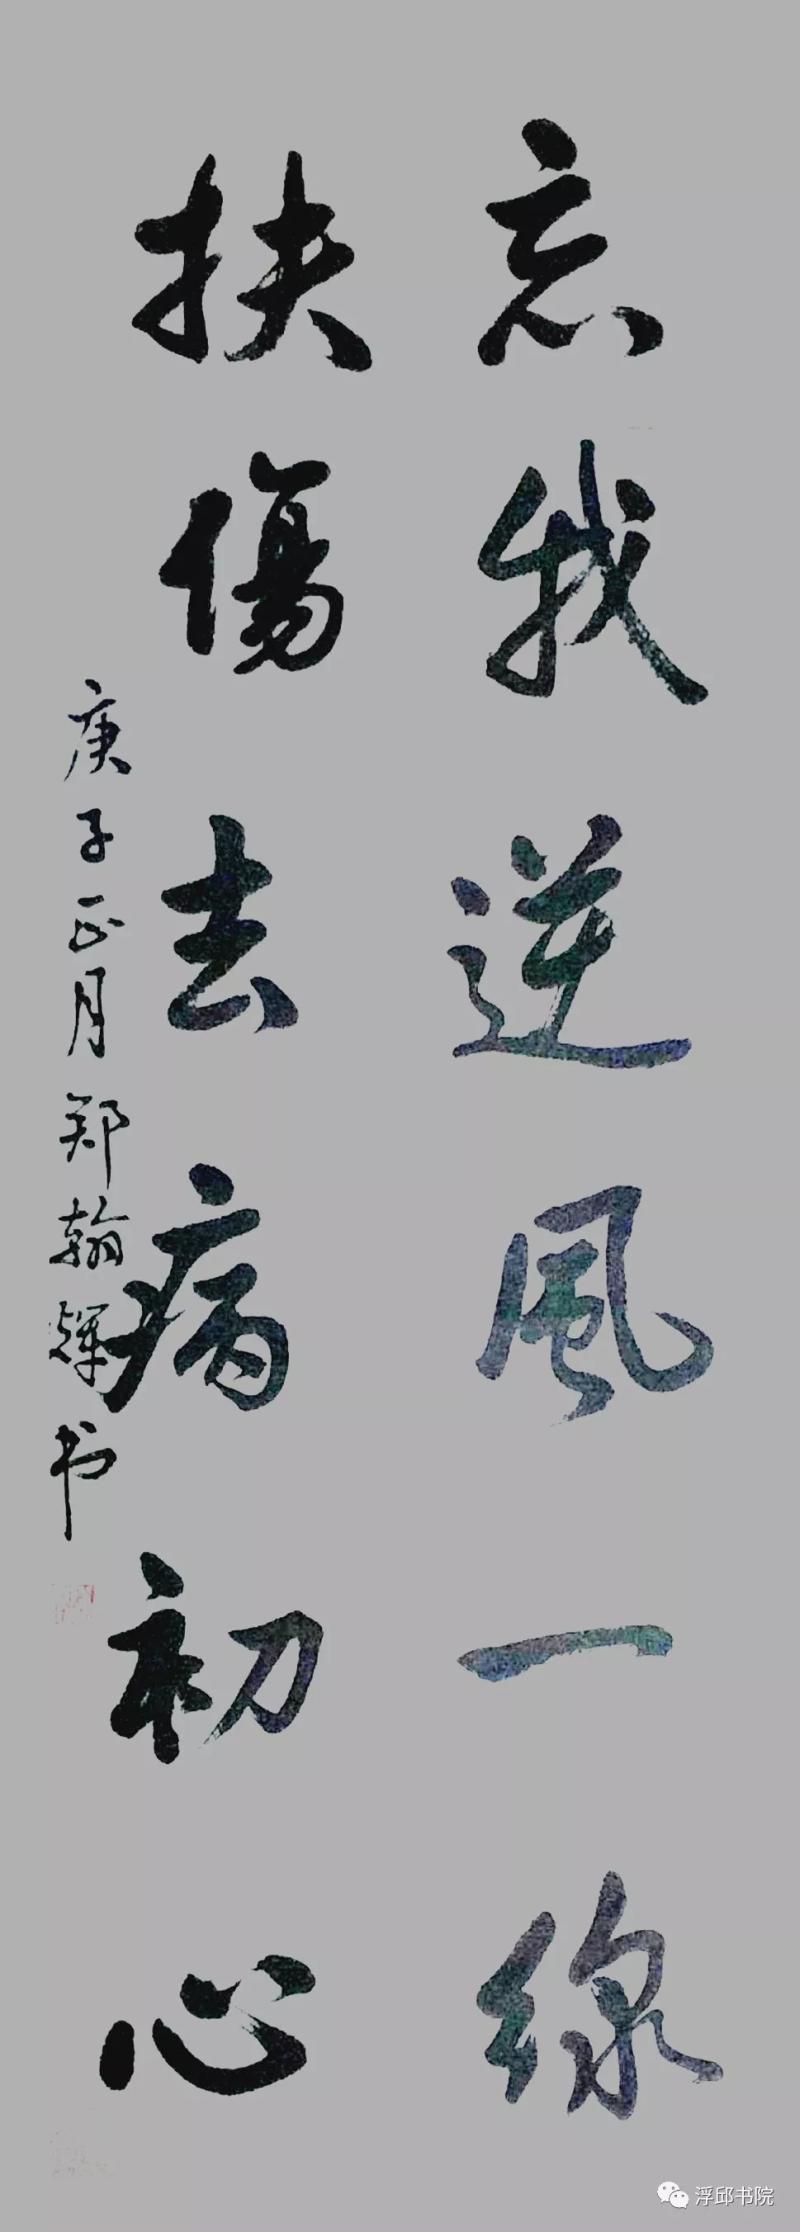 忘我逆風一線
扶傷去病初心
庚子正月郑翰輝书
浮邱书院